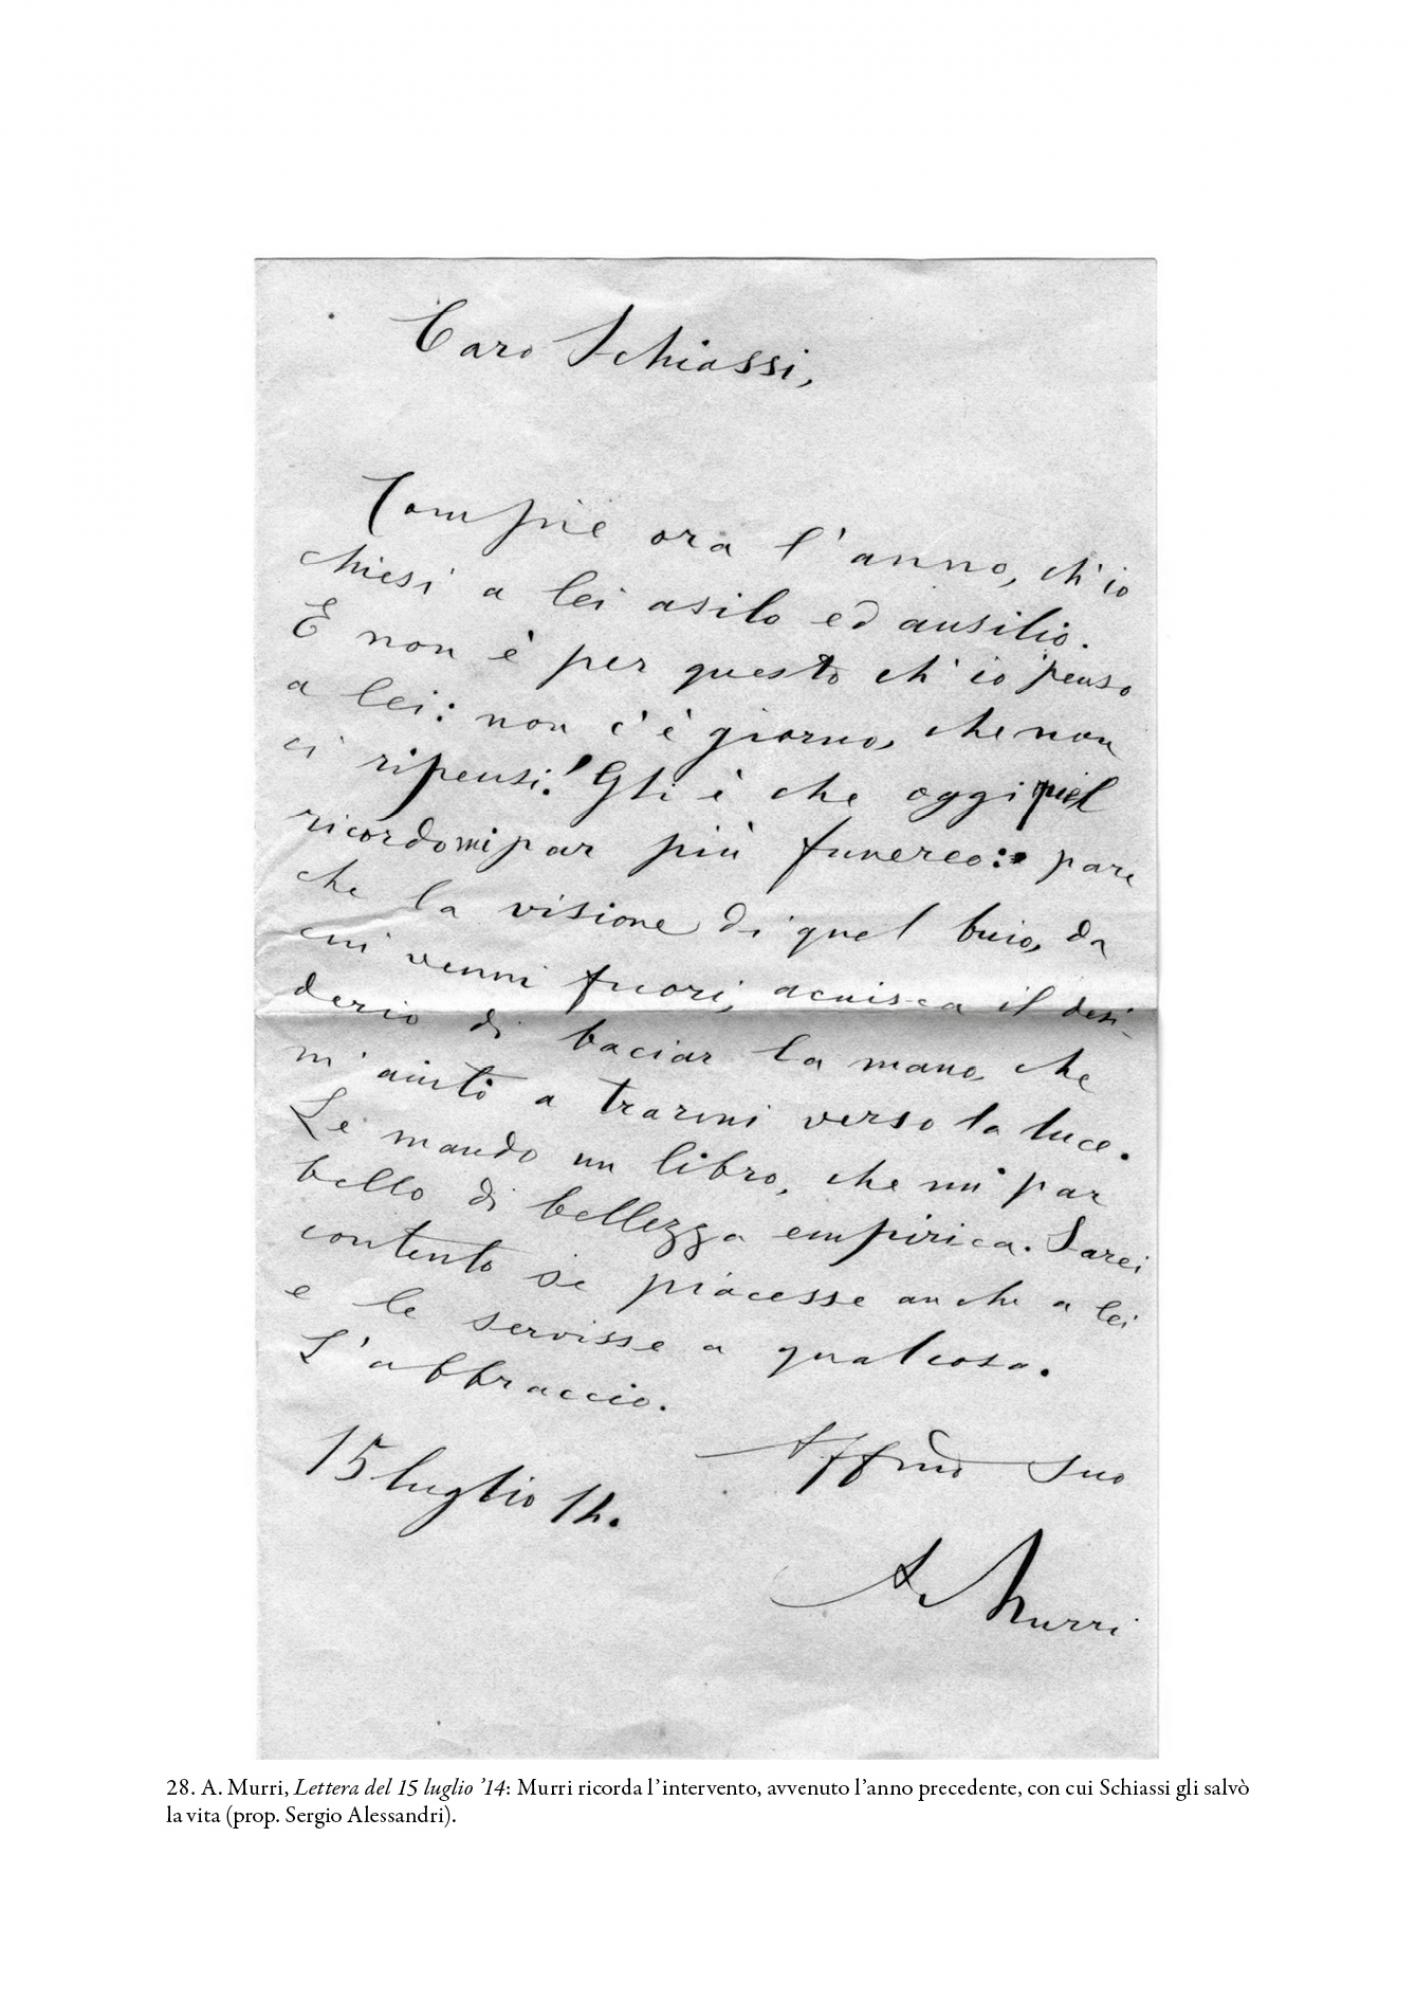 Caro Schiassi,
Compie ora l'anno, ch'io
chiesi a lei asilo ed ausilio.
E non è per questo ch'io penso
a lei: non c'è giorno, che non
ci ripensi! Gli è che oggi quel
ricordo mi par più funereo: pare
che la visione di quel buio, da
cui venni fuori, acuisca il desi-
derio di baciar la mano, che
m'aiutò a trarmi verso la luce.
Le mando un libro, che mi par
bello di bellezza empirica. Sarei
contento se piacesse anche a lei
e le servisse a qualcosa.
L'abbraccio.
Affmo suo
15 luglio 14.
A. Murri
28. A. Murri, Lettera del 15 luglio ’14: Murri ricorda l’intervento, avvenuto l’anno precedente, con cui Schiassi gli salvò
la vita (prop. Sergio Alessandri).